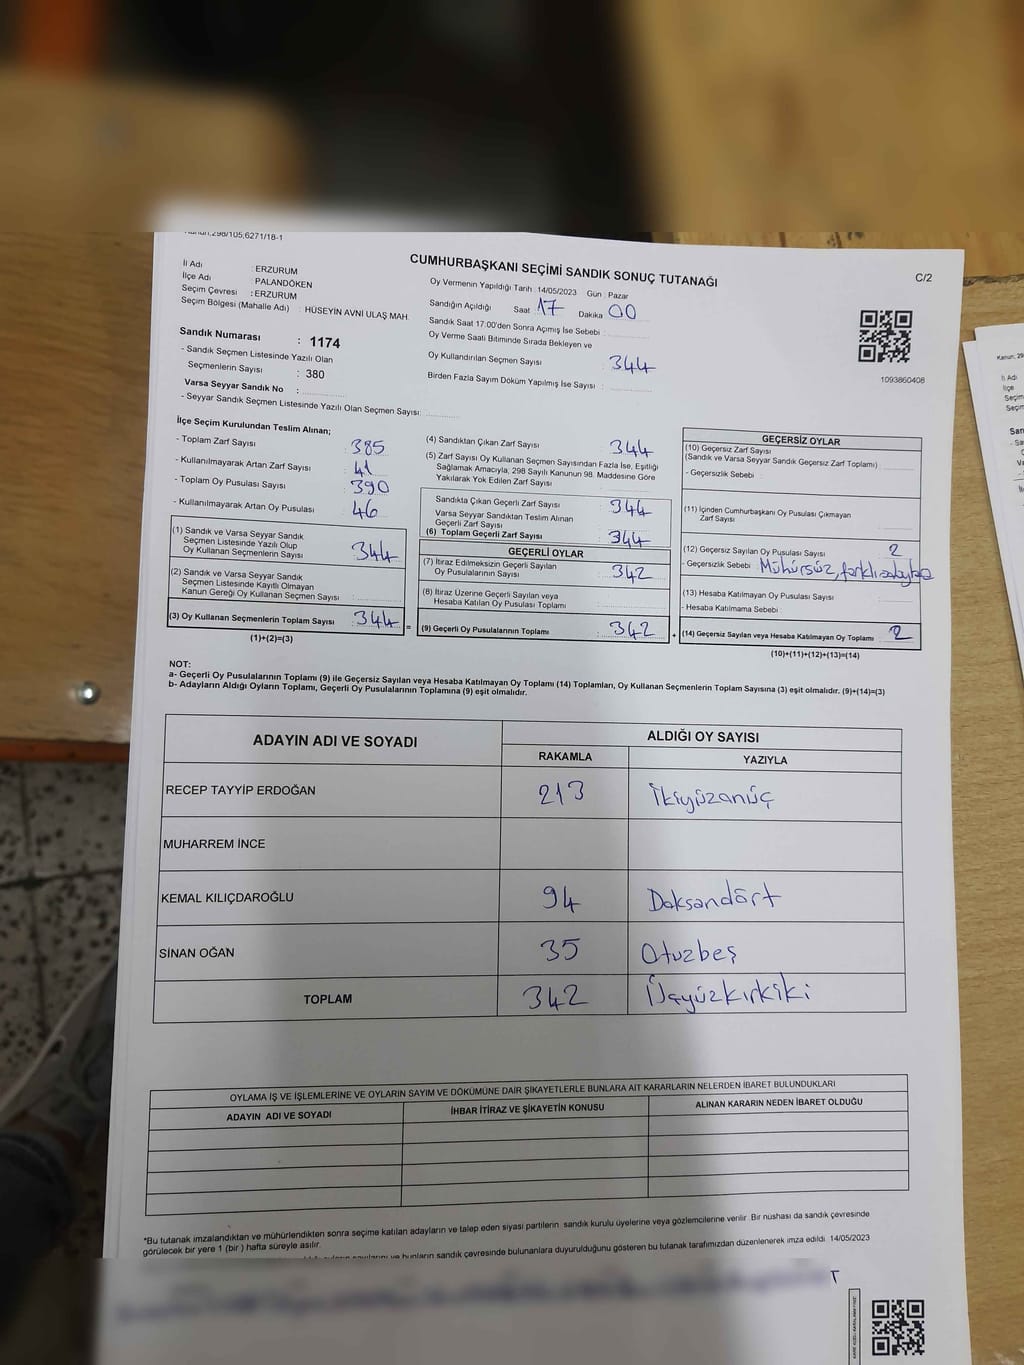 Kanun;298/105,6271/18-1
CUMHURBAŞKANI SEÇİMİ SANDIK SONUÇ TUTANAĞI
C/2
İl Adı : ERZURUM
İlçe Adı : PALANDÖKEN
Seçim Çevresi : ERZURUM
Seçim Bölgesi (Mahalle Adı) : HÜSEYİN AVNİ ULAŞ MAH.
Sandık Numarası : 1174
- Sandık Seçmen Listesinde Yazılı Olan
Seçmenlerin Sayısı : 380
Varsa Seyyar Sandık No :
- Seyyar Sandık Seçmen Listesinde Yazılı Olan Seçmen Sayısı:
Oy Vermenin Yapıldığı Tarih : 14/05/2023 Gün : Pazar
Sandığın Açıldığı Saat : 17 Dakika : 00
Sandık Saat 17:00'den Sonra Açımış İse Sebebi :
Oy Verme Saati Bitiminde Sırada Bekleyen ve
Oy Kullandırılan Seçmen Sayısı : 344
Birden Fazla Sayım Döküm Yapılmış İse Sayısı :
1093860408
İlçe Seçim Kurulundan Teslim Alınan;
- Toplam Zarf Sayısı : 385
- Kullanılmayarak Artan Zarf Sayısı : 41
- Toplam Oy Pusulası Sayısı : 390
- Kullanılmayarak Artan Oy Pusulası : 46
(1) Sandık ve Varsa Seyyar Sandık
Seçmen Listesinde Yazılı Olup
Oy Kullanan Seçmenlerin Sayısı : 344
(2) Sandık ve Varsa Seyyar Sandık
Seçmen Listesinde Kayıtlı Olmayan
Kanun Gereği Oy Kullanan Seçmen Sayısı :
(3) Oy Kullanan Seçmenlerin Toplam Sayısı : 344 =
(1)+(2)=(3)
(4) Sandıktan Çıkan Zarf Sayısı : 344
(5) Zarf Sayısı Oy Kullanan Seçmen Sayısından Fazla İse, Eşitliği
Sağlamak Amacıyla, 298 Sayılı Kanunun 98. Maddesine Göre
Yakılarak Yok Edilen Zarf Sayısı :
Sandıkta Çıkan Geçerli Zarf Sayısı : 344
Varsa Seyyar Sandıktan Teslim Alınan
Geçerli Zarf Sayısı :
(6) Toplam Geçerli Zarf Sayısı : 344
GEÇERLİ OYLAR
(7) İtiraz Edilmeksizin Geçerli Sayılan
Oy Pusulalarının Sayısı : 342
(8) İtiraz Üzerine Geçerli Sayılan veya
Hesaba Katılan Oy Pusulası Toplamı :
(9) Geçerli Oy Pusulalarının Toplamı : 342 +
GEÇERSİZ OYLAR
(10) Geçersiz Zarf Sayısı
(Sandık ve Varsa Seyyar Sandık Geçersiz Zarf Toplamı) :
- Geçersizlik Sebebi :
(11) İçinden Cumhurbaşkanı Oy Pusulası Çıkmayan
Zarf Sayısı :
(12) Geçersiz Sayılan Oy Pusulası Sayısı : 2
- Geçersizlik Sebebi : Mühürsüz,
(13) Hesaba Katılmayan Oy Pusulası Sayısı :
- Hesaba Katılmama Sebebi :
(14) Geçersiz Sayılan veya Hesaba Katılmayan Oy Toplamı : 2
(10)+(11)+(12)+(13)=(14)
NOT:
a- Geçerli Oy Pusulalarının Toplamı (9) ile Geçersiz Sayılan veya Hesaba Katılmayan Oy Toplamı (14) Toplamları, Oy Kullanan Seçmenlerin Toplam Sayısına (3) eşit olmalıdır. (9)+(14)=(3)
b- Adayların Aldığı Oyların Toplamı, Geçerli Oy Pusulalarının Toplamına (9) eşit olmalıdır.
ADAYIN ADI VE SOYADI
ALDIĞI OY SAYISI
RAKAMLA YAZIYLA
RECEP TAYYİP ERDOĞAN 213 İkiyüzonüç
MUHARREM İNCE
KEMAL KILIÇDAROĞLU 94 Doksandört
SİNAN OĞAN 35 Otuzbeş
TOPLAM 342 Üçyüzkırkiki
OYLAMA İŞ VE İŞLEMLERİNE VE OYLARIN SAYIM VE DÖKÜMÜNE DAİR ŞİKAYETLERLE BUNLARA AİT KARARLARIN NELERDEN İBARET BULUNDUKLARI
ADAYIN ADI VE SOYADI İHBAR İTİRAZ VE ŞİKAYETİN KONUSU ALINAN KARARIN NEDEN İBARET OLDUĞU
*Bu tutanak imzalandıktan ve mühürlendikten sonra seçime katılan adayların ve talep eden siyasi partilerin sandık kurulu üyelerine veya gözlemcilerine verilir. Bir nüshası da sandık çevresinde
görülecek bir yere 1 (bir) hafta süreyle asılır.
ve bunların sandık çevresinde bulunanlara duyurulduğunu gösteren bu tutanak tarafımızdan düzenlenerek imza edildi. 14/05/2023